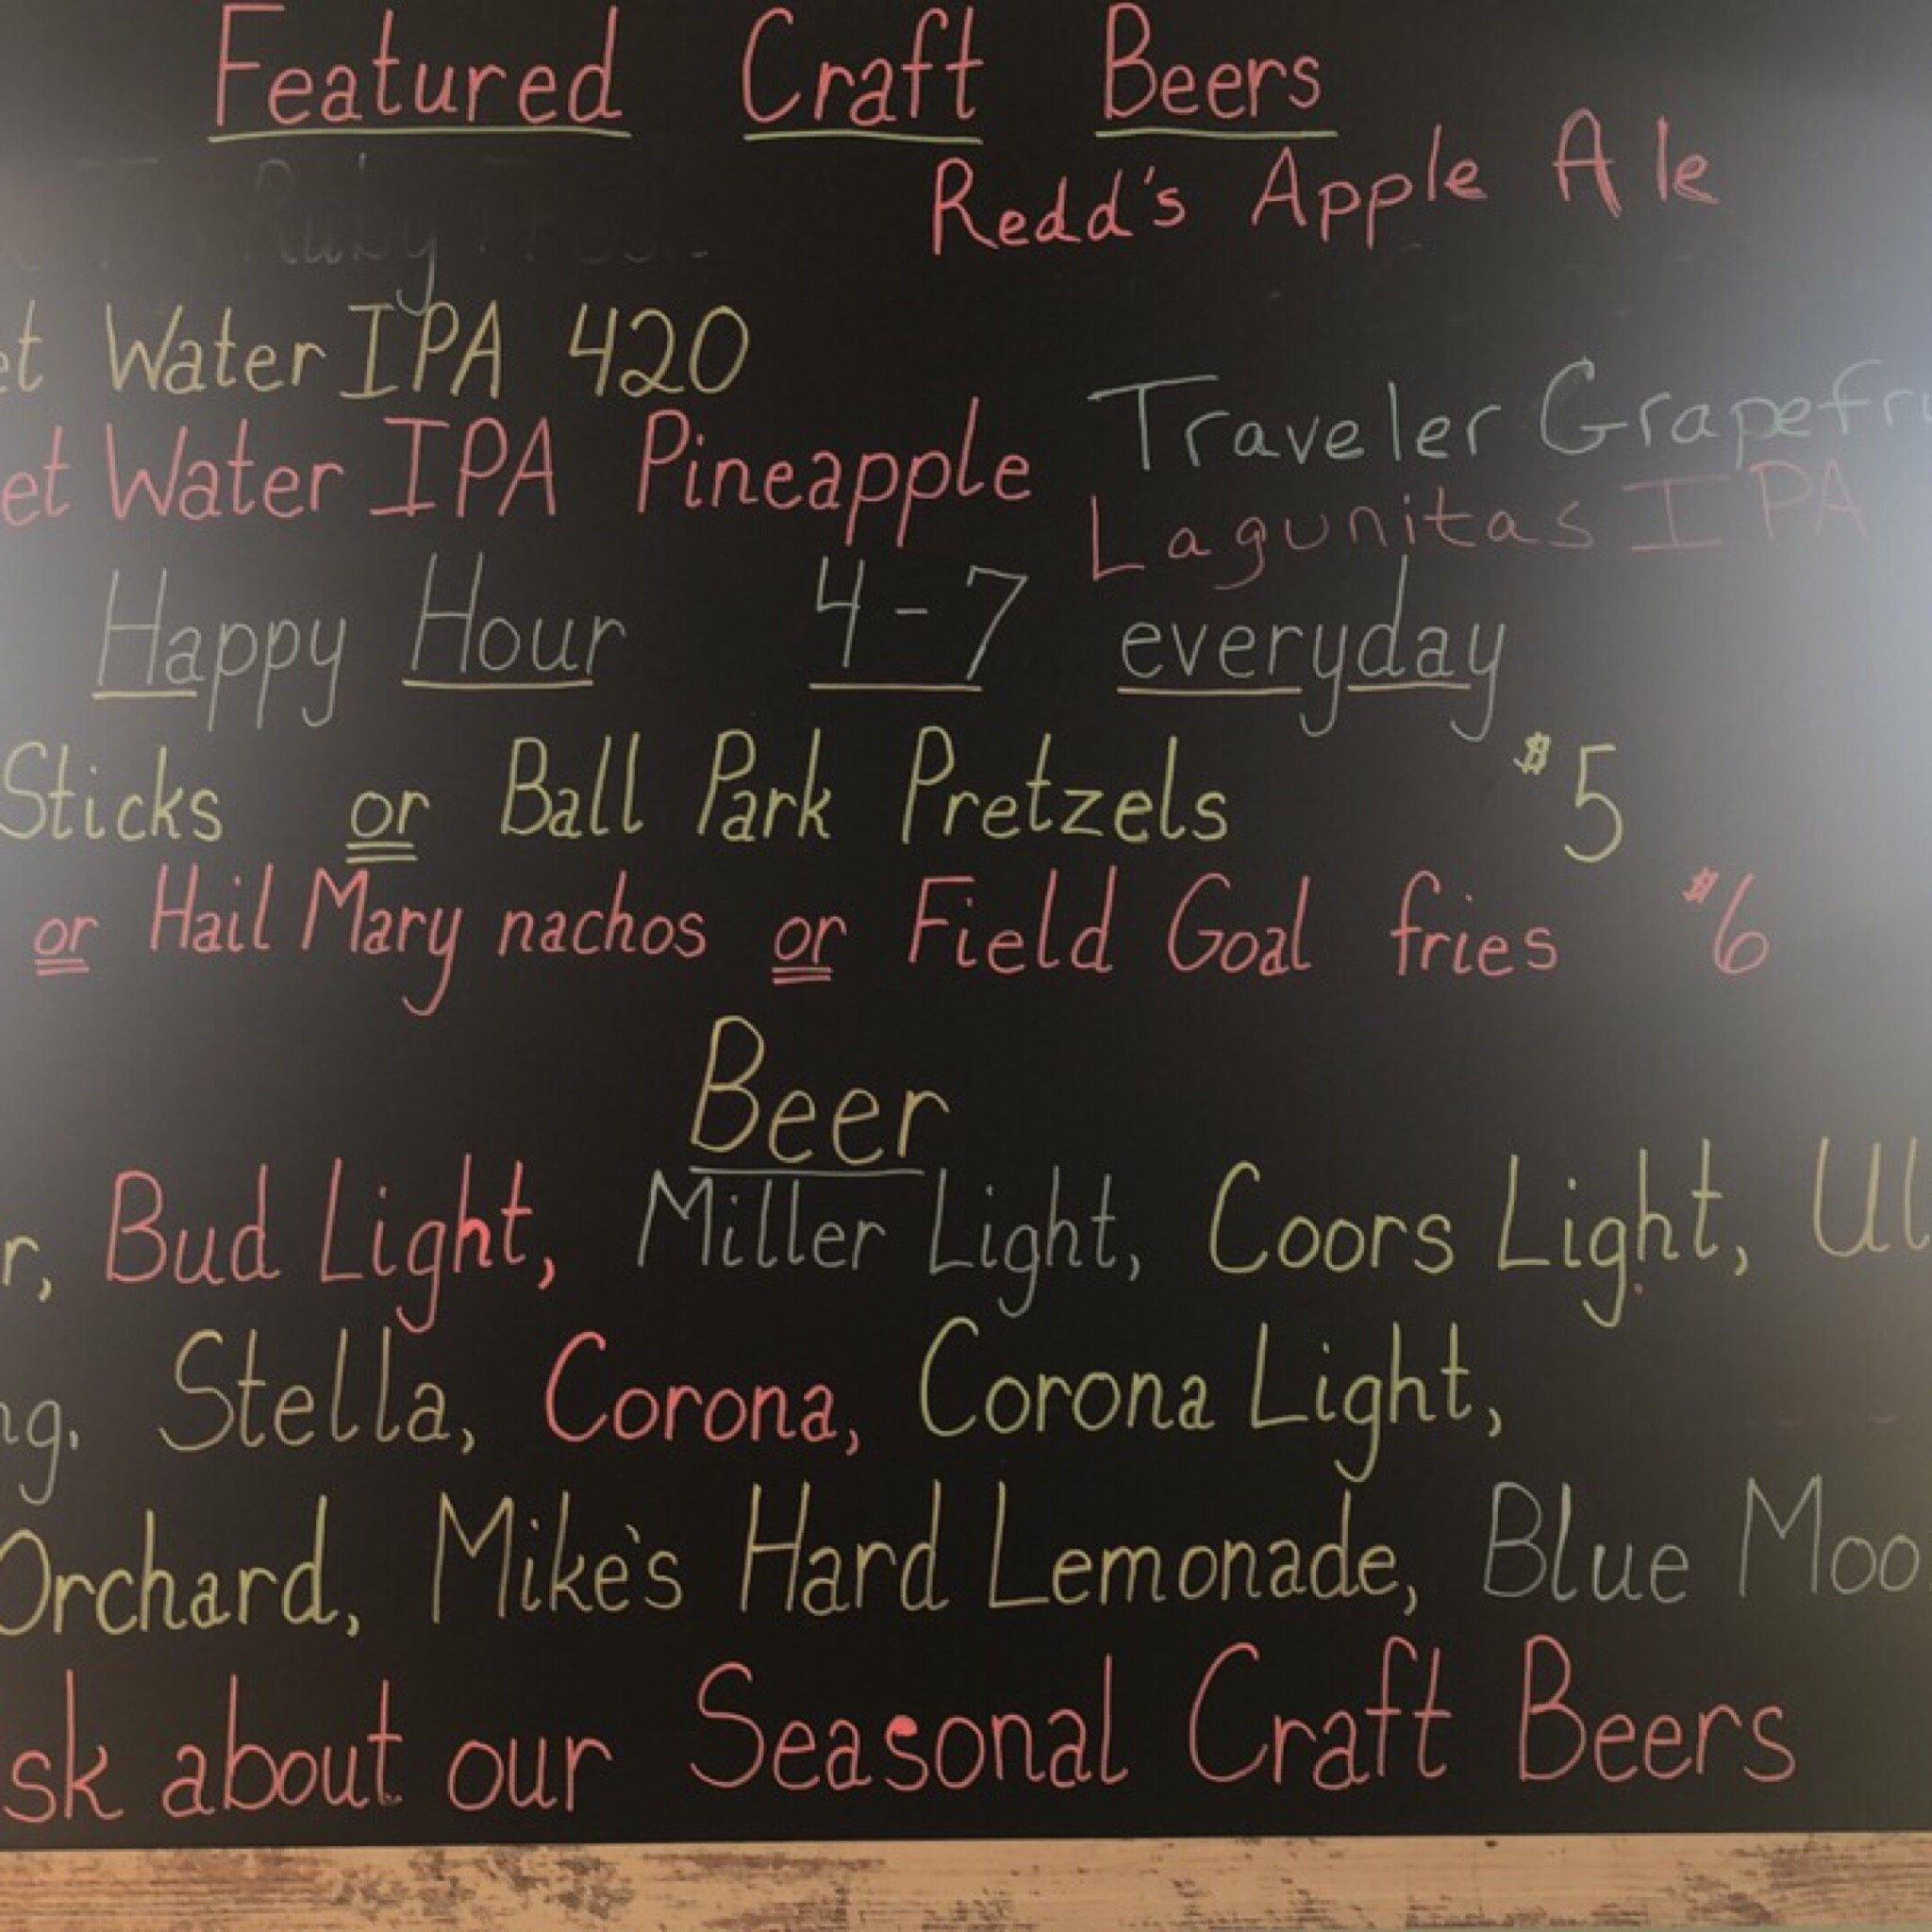 Featured Craft Beers
Redd's Apple Ale
Ruby
et Water IPA 420
et Water IPA Pineapple
Traveler Grapefru
Lagunitas IPA
Happy Hour 4-7 everyday
Sticks or Ball Park Pretzels $5
or Hail Mary nachos or Field Goal fries $6
Beer
r, Bud Light, Miller Light, Coors Light, Ul
ng, Stella, Corona, Corona Light,
Orchard, Mike's Hard Lemonade, Blue Moo
sk about our Seasonal Craft Beers